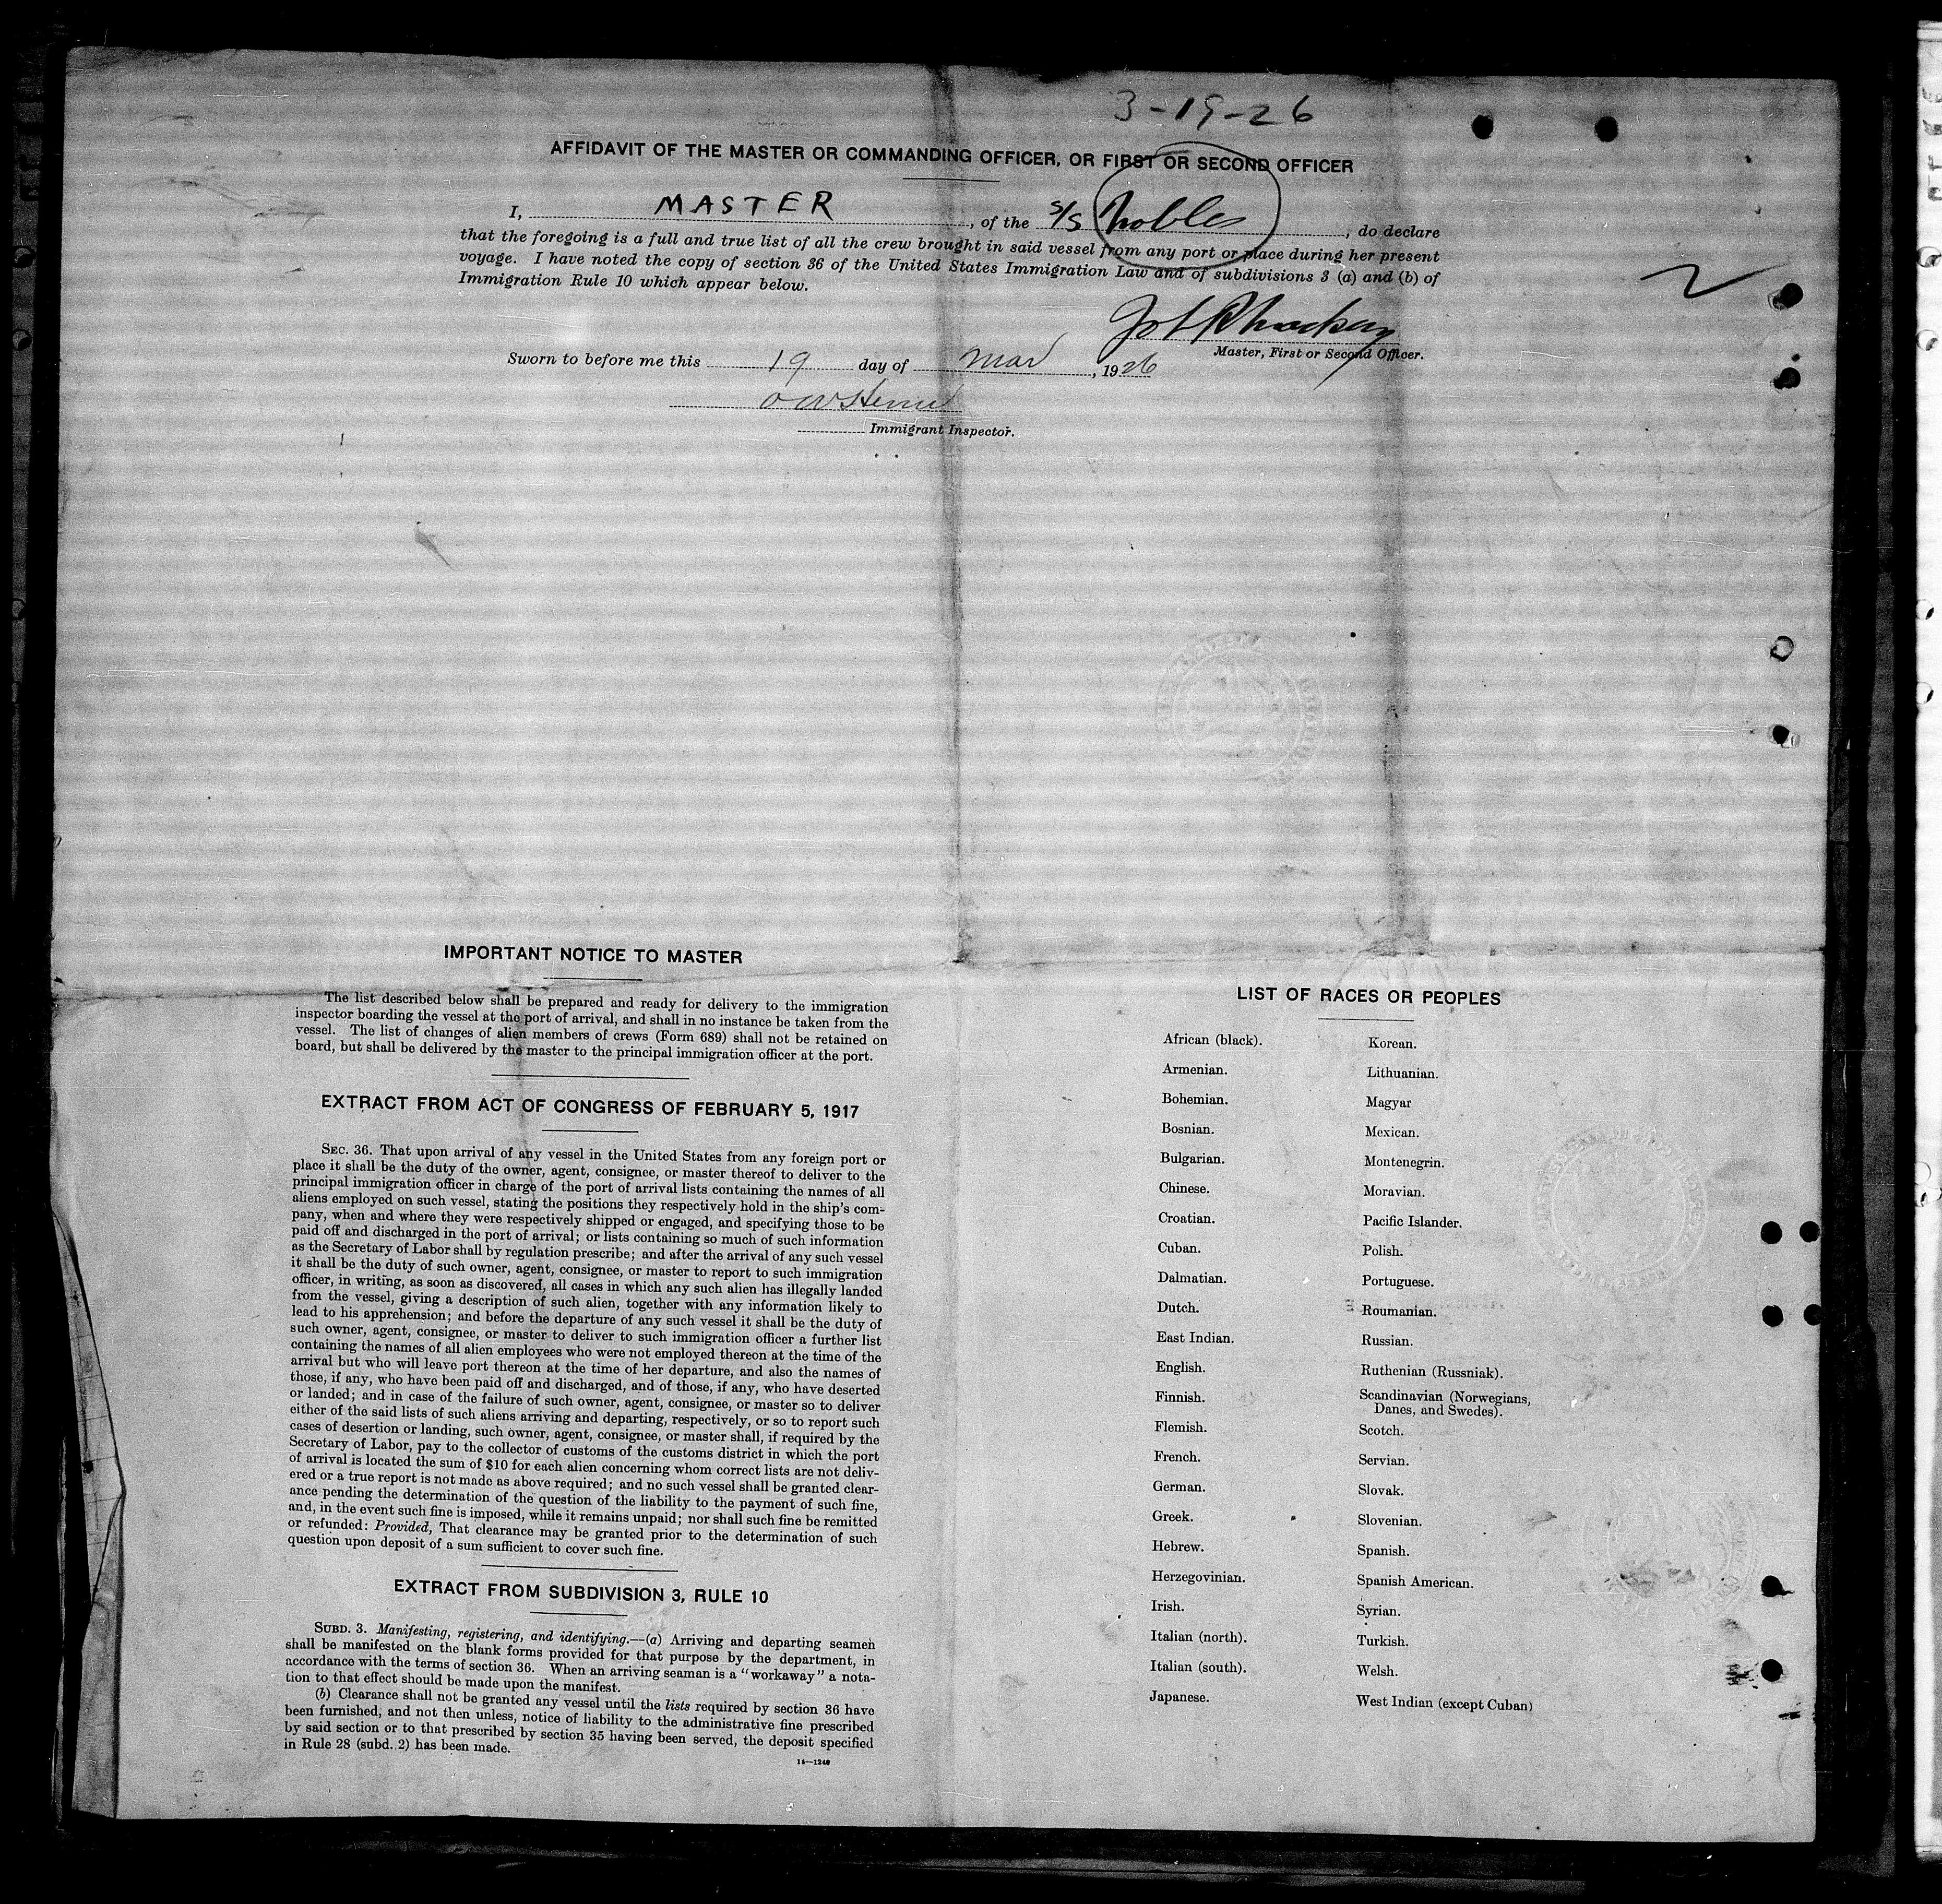 3-19-26
AFFIDAVIT OF THE MASTER OR COMMANDING OFFICER, OR FIRST OR SECOND OFFICER
I, MASTER, of the S/S Nobles, do declare
that the foregoing is a full and true list of all the crew brought in said vessel from any port or place during her present
voyage. I have noted the copy of section 36 of the United States Immigration Law and of subdivisions 3 (a) and (b) of
Immigration Rule 10 which appear below.
Master, First or Second Officer.
Sworn to before me this 19 day of Mar, 1926
Immigrant Inspector.
IMPORTANT NOTICE TO MASTER
The list described below shall be prepared and ready for delivery to the immigration
inspector boarding the vessel at the port of arrival, and shall in no instance be taken from the
vessel. The list of changes of alien members of crews (Form 689) shall not be retained on
board, but shall be delivered by the master to the principal immigration officer at the port.
EXTRACT FROM ACT OF CONGRESS OF FEBRUARY 5, 1917
SEC. 36. That upon arrival of any vessel in the United States from any foreign port or
place it shall be the duty of the owner, agent, consignee, or master thereof to deliver to the
principal immigration officer in charge of the port of arrival lists containing the names of all
aliens employed on such vessel, stating the positions they respectively hold in the ship's com-
pany, when and where they were respectively shipped or engaged, and specifying those to be
paid off and discharged in the port of arrival; or lists containing so much of such information
as the Secretary of Labor shall by regulation prescribe; and after the arrival of any such vessel
it shall be the duty of such owner, agent, consignee, or master to report to such immigration
officer, in writing, as soon as discovered, all cases in which any such alien has illegally landed
from the vessel, giving a description of such alien, together with any information likely to
lead to his apprehension; and before the departure of any such vessel it shall be the duty of
such owner, agent, consignee, or master to deliver to such immigration officer a further list
containing the names of all alien employees who were not employed thereon at the time of the
arrival but who will leave port thereon at the time of her departure, and also the names of
those, if any, who have been paid off and discharged, and of those, if any, who have deserted
or landed; and in case of the failure of such owner, agent, consignee, or master so to deliver
either of the said lists of such aliens arriving and departing, respectively, or so to report such
cases of desertion or landing, such owner, agent, consignee, or master shall, if required by the
Secretary of Labor, pay to the collector of customs of the customs district in which the port
of arrival is located the sum of $10 for each alien concerning whom correct lists are not deliv-
ered or a true report is not made as above required; and no such vessel shall be granted clear-
ance pending the determination of the question of the liability to the payment of such fine,
and, in the event such fine is imposed, while it remains unpaid; nor shall such fine be remitted
or refunded: Provided, That clearance may be granted prior to the determination of such
question upon deposit of a sum sufficient to cover such fine.
EXTRACT FROM SUBDIVISION 3, RULE 10
SUBD. 3. Manifesting, registering, and identifying.—(a) Arriving and departing seamen
shall be manifested on the blank forms provided for that purpose by the department, in
accordance with the terms of section 36. When an arriving seaman is a "workaway" a nota-
tion to that effect should be made upon the manifest.
(b) Clearance shall not be granted any vessel until the lists required by section 36 have
been furnished, and not then unless, notice of liability to the administrative fine prescribed
by said section or to that prescribed by section 35 having been served, the deposit specified
in Rule 28 (subd. 2) has been made.
14—1240
LIST OF RACES OR PEOPLES
African (black).
Armenian.
Bohemian.
Bosnian.
Bulgarian.
Chinese.
Croatian.
Cuban.
Dalmatian.
Dutch.
East Indian.
English.
Finnish.
Flemish.
French.
German.
Greek.
Hebrew.
Herzegovinian.
Irish.
Italian (north).
Italian (south).
Japanese.
Korean.
Lithuanian.
Magyar
Mexican.
Montenegrin.
Moravian.
Pacific Islander.
Polish.
Portuguese.
Roumanian.
Russian.
Ruthenian (Russniak).
Scandinavian (Norwegians,
Danes, and Swedes).
Scotch.
Servian.
Slovak.
Slovenian.
Spanish.
Spanish American.
Syrian.
Turkish.
Welsh.
West Indian (except Cuban)